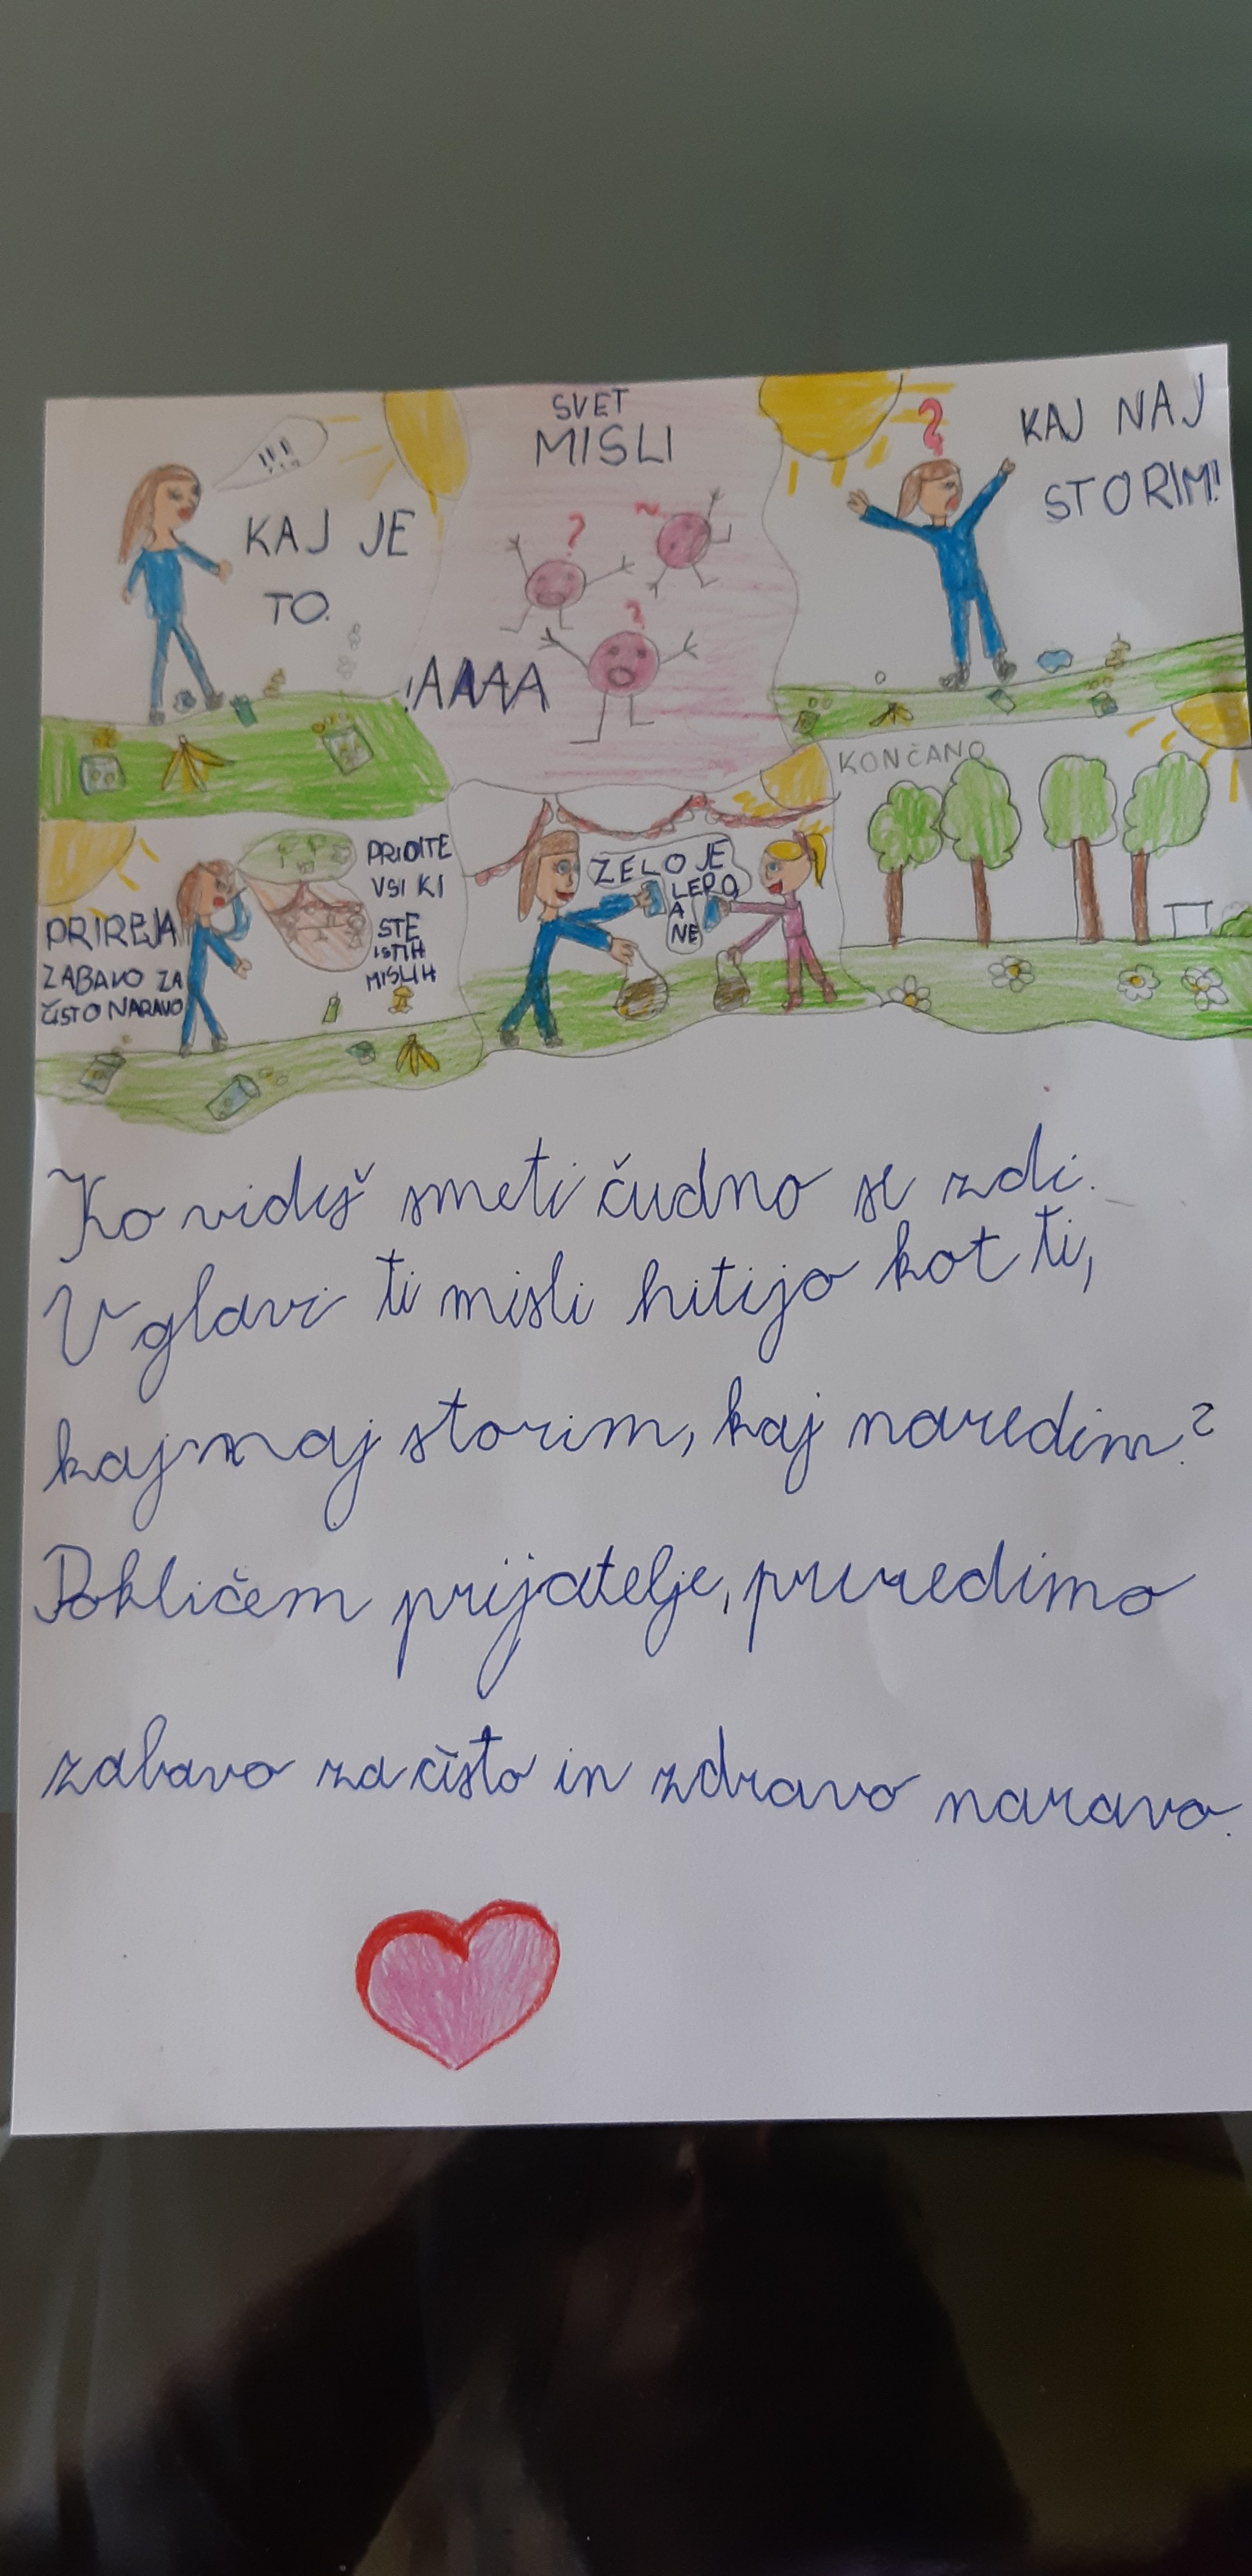 !!!
KAJ JE
TO.
SVET
MISLI
?
?
?
!AAAA
?
KAJ NAJ
STORIM!
PRIREJA
ZABAVO ZA
ČISTO NARAVO
PRIDITE
VSI KI
STE
ISTIH
MISLIH
ZELO JE
LEPO
A
NE
KONČANO
Ko vidiš smeti čudno se zdi.
V glavi ti misli hitijo kot ti,
kaj naj storim, kaj naredim?
Pokličem prijatelje, priredimo
zabavo za čisto in zdravo naravo.